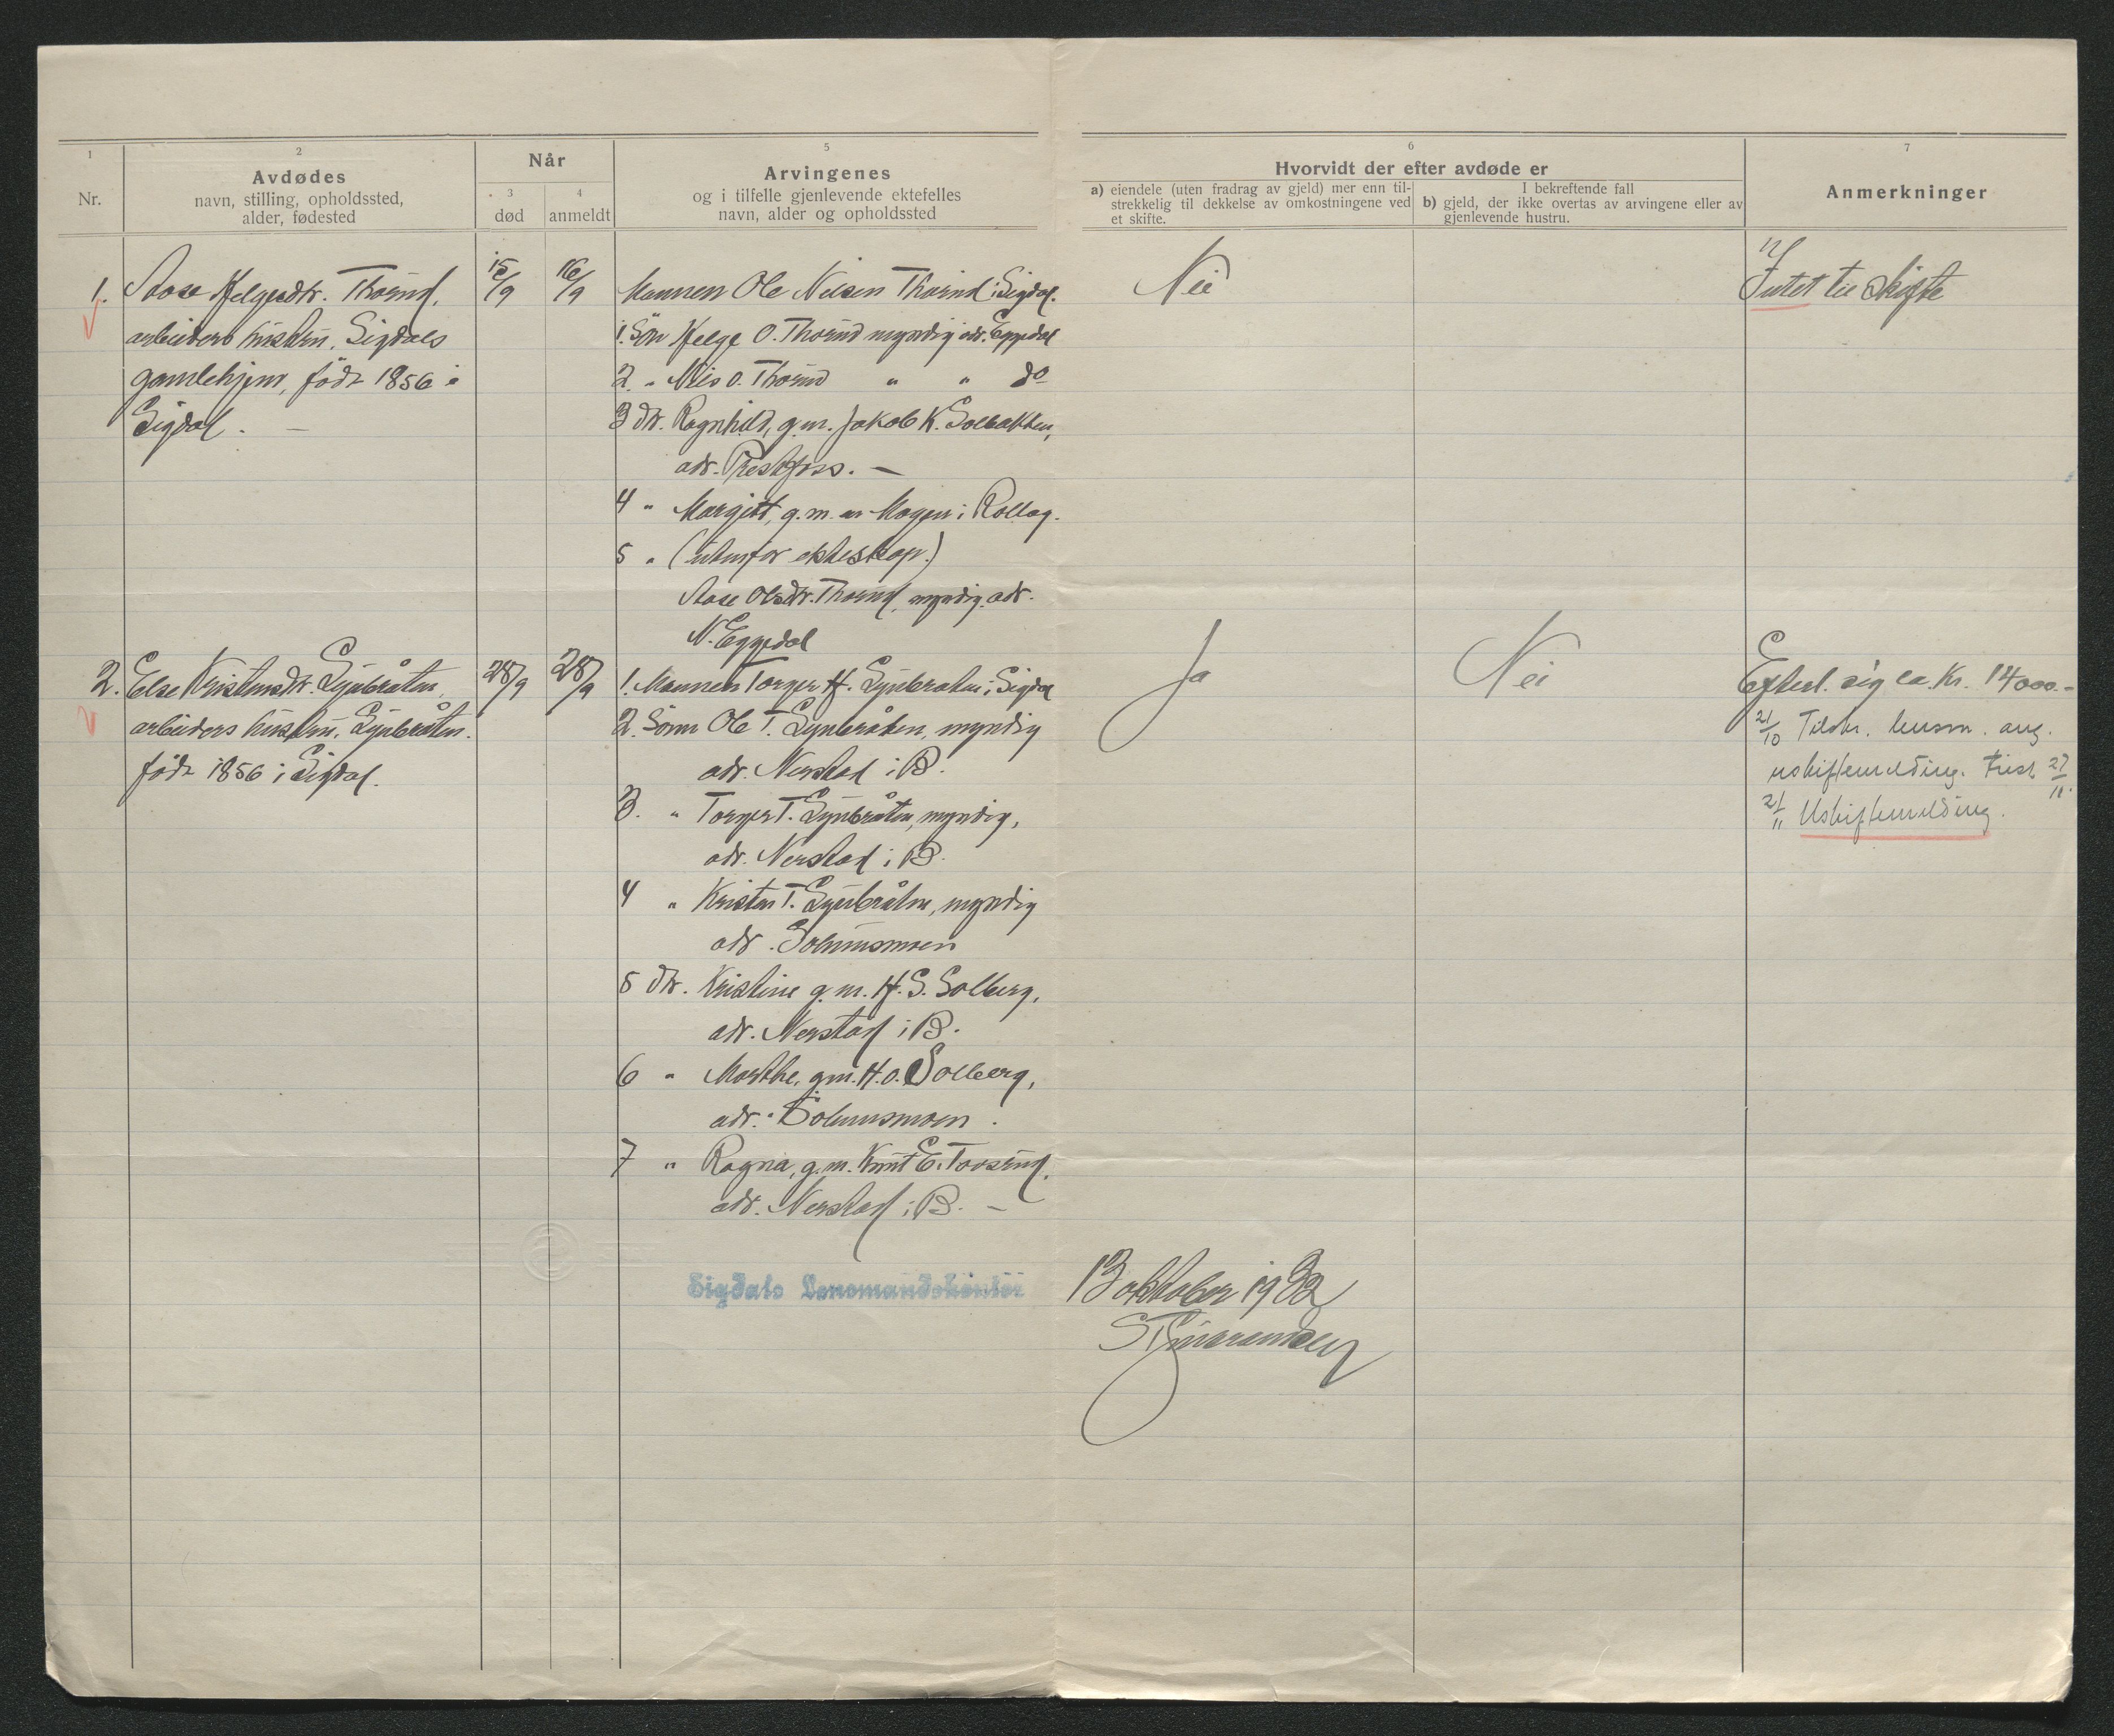 1
2
3
4
5
6
7
Nr.
Avdødes
navn, stilling, opholdssted,
alder, fødested
Når
død
anmeldt
Arvingenes
og i tilfelle gjenlevende ektefelles
navn, alder og opholdssted
Hvorvidt der efter avdøde er
a) eiendele (uten fradrag av gjeld) mer enn til-
strekkelig til dekkelse av omkostningene ved
et skifte.
I bekreftende fall
b) gjeld, der ikke overtas av arvingene eller av
gjenlevende hustru.
Anmerkninger
1. Aase Helgesdtr. Thorud,
arbeiders hustru, Sigdals
gamlehjem, født 1856 i
Sigdal. —
15/9
16/9
Mannen Ole Nilsen Thorud i Sigdal.
1. Søn Helge O. Thorud myndig adr. Eggedal
2. " Nils O. Thorud " " do
3 dtr. Ragnhild, g.m. Jakob K. Solbakken,
adr. Prestfoss. —
4 " Margitt, g.m. en Mogen i Rollag.
5 " (utenfor ekteskap.)
Aase Olsdtr. Thorud, myndig, adr.
N. Eggedal
Nei
Intet til skifte
2. Else Kristensdtr. Lynbråten,
arbeiders hustru, Lynbråten.
født 1856 i Sigdal.
28/9
28/9
1. Mannen Torger H. Lynbraten i Sigdal
2. Sønn Ole T. Lynbråten, myndig
adr. Nerstad i B.
3. " Torger T. Lynbråten, myndig,
adr. Nerstad i B.
4 " Kristen T. Lynbråten, myndig
adr. Solumsmoen
5 dtr. Kristine g.m. H. S. Solberg,
adr. Nerstad i B.
6 " Marthe, gm. H. O. Solberg,
adr. Solumsmoen.
7 " Ragna, g.m. Knut E. Toverud.
adr. Nerstad i B. —
Ja
Nei
Efterl. sig ca. Kr. 14000.-
21/10 Tilskr. lensm. ang.
uskiftemelding. Frist 27/11.
21/11 Uskiftemelding.
Sigdals Lensmandskontor
13 oktober 1932